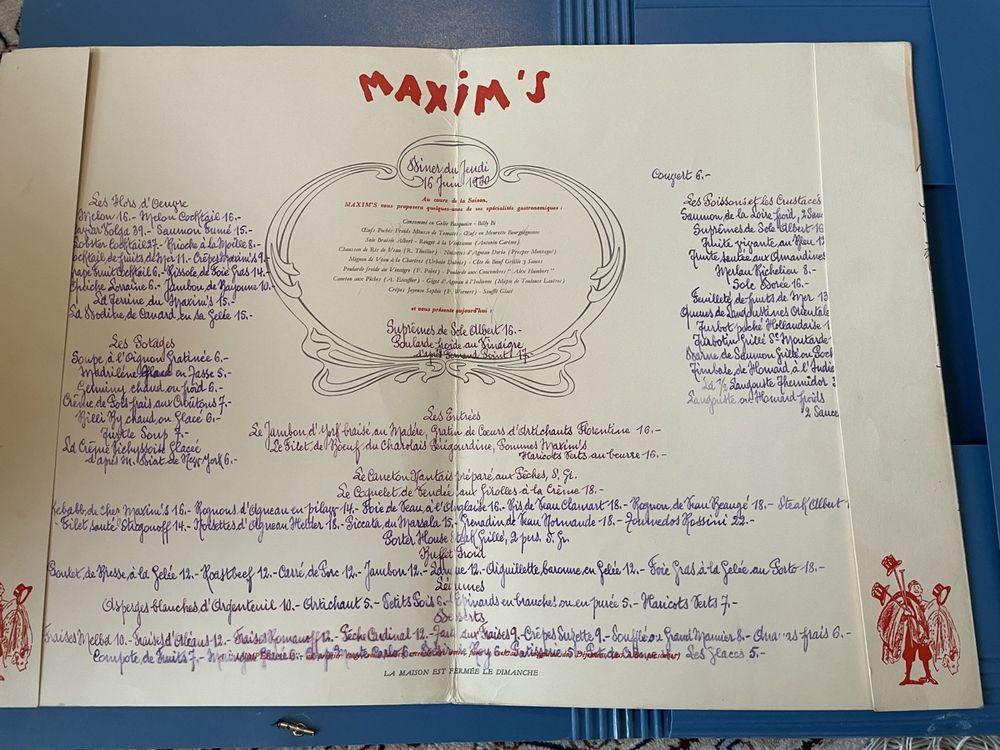 MAXIM'S
Diner du Jeudi
16 Juin 1960
Au cours de la Saison,
MAXIM'S vous proposera quelques-unes de ses spécialités gastronomiques :
Consommé en Gelée Basquaise - Billy Bi
Œufs Pochés Froids Mousse de Tomates - Œufs en Meurette Bourguignonne
Sole Braisée Albert - Rouget à la Vénitienne (Antonin Carême)
Chausson de Ris de Veau (R. Thuilier) - Noisettes d'Agneau Doria (Prosper Montagné)
Mignon de Veau à la Chartres (Urbain Dubois) - Côte de Bœuf Grillée 3 Sauces
Poularde froide au Vinaigre (F. Point) - Poularde aux Concombres " Alex Humbert "
Caneton aux Pêches (A. Escoffier) - Gigot d'Agneau à l'Indienne (Mapie de Toulouse Lautrec)
Crêpes Joyeuse Sophie (F. Wernert) - Soufflé Glacé
et vous présente aujourd'hui :
Suprêmes de Sole Albert 16.-
Poularde froide au Vinaigre
d'après Fernand Point 17.-
Les Hors d'Oeuvre
Melon 16.- Melon Cocktail 16.-
Caviar Volga 39.- Saumon Fumé 15.-
Lobster Cocktail 27.- Brioche à la Moëlle 8.-
Cocktail de fruits de Mer 11.- Crêpes Maxim's 9.-
Grape fruit Cocktail 6.- Rissole de Foie Gras 14.-
Quiche Lorraine 6.- Jambon de Bayonne 10.-
La Terrine du Maxim's 15.-
La Bodine de Canard en sa Gelée 15.-
Les Potages
Soupe à l'Oignon Gratinée 6.-
Madrilène Glacé en Tasse 5.-
Germiny chaud ou froid 6.-
Crème de Pois frais aux Croûtons 7.-
Billi By chaud ou Glacé 6.-
Turtle Soup 7.-
La Crème Vichyssoise Glacée
d'après M. Diat de New York 6.-
Couvert 6.-
Les Poissons et les Crustacés
Saumon de la Loire froid, 2 Sau
Suprêmes de Sole Albert 16
Truite vivante au Bleu 12
Truite sautée aux Amandines
Merlan Richelieu 8.-
Sole Dorée 16.-
Feuilleté de fruits de Mer 13
Queues de Langoustines Orientale
Turbot poché Hollandaise 1
Turbotin Grillé Sce Moutarde
Darne de Saumon Grillé ou Poch
Timbale de Homard à l'Indie
La ½ Langouste Thermidor
Langouste ou Homard froids
2 Sauce
Les Entrées
Le Jambon d'York braisé au Madère, Gratin de Cœurs d'Artichants Florentine 16.-
Le Filet de Boeuf du Charolais Périgourdine, Pommes Maxim's
Haricots Verts au beurre 16.-
Le Caneton Nantais préparé aux Pêches, S. Gr.
Le Coquelet de Vendée aux Girolles à la Crème 18.-
Kebabb de cher Maxim's 16.- Rognons d'Agneau en pilaff 14.- Foie de Veau à l'Anglaise 16.- Ris de Veau Clamart 18.- Rognon de Veau Beaugé 18.- Steak Albert
Filet sauté Strogonoff 14.- Noisettes d'Agneau Helder 18.- Piccata du Marsala 15.- Grenadin de Veau Normande 18.- Tournedos Rossini 22.-
Porter House Steak Grillé, 2 pers. S. Gr.
Buffet Froid
Poulet de Bresse, à la Gelée 12.- Roastbeef 12.- Carré de Porc 12.- Jambon 12.- Langue 12.- Aiguillette baronne en Gelée 12.- Foie Gras à la Gelée au Porto 18.-
Légumes
Asperges blanches d'Argenteuil 10.- Artichaut 5.- Petits Pois 6.- Epinards en branches ou en purée 5.- Haricots Verts 7.-
Desserts
Fraises Melba 10.- Fraises d'Orléans 12.- Fraises Romanoff 12.- Pêche Cardinal 12.- Tart. aux Fraises 9.- Crêpes Suzette 9.- Soufflé au Grand Marnier 8.- Ananas frais 6.-
Compote de Fruits 7.- Monte Carlo 6.- Patisserie 5.- Les Glaces 5.-
LA MAISON EST FERMÉE LE DIMANCHE